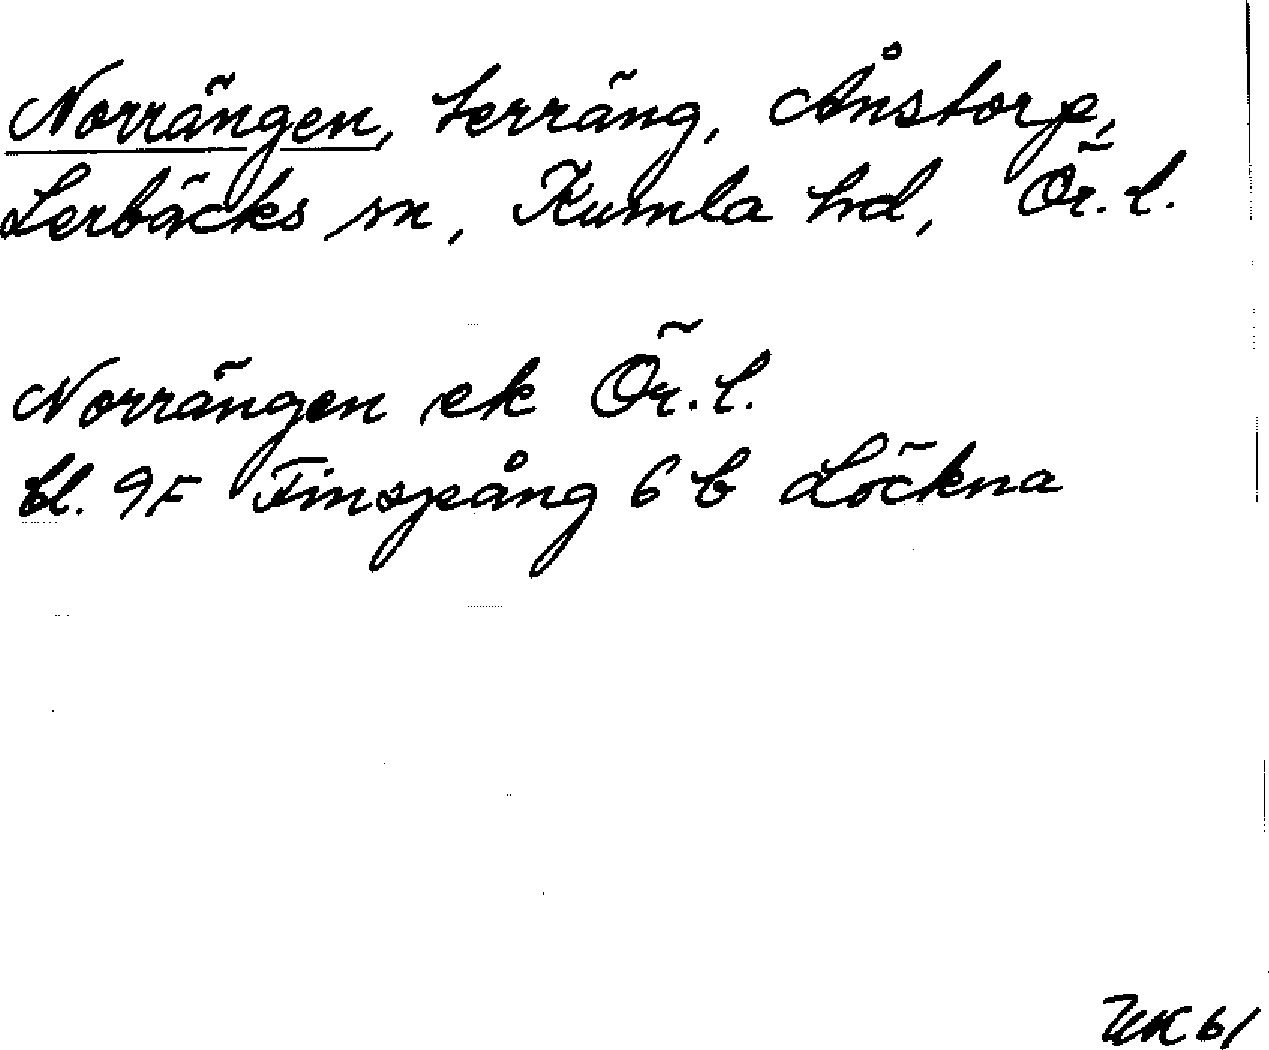 Norrängen, terräng, Ånstorp,
Lerbäcks sn, Kumla hd, Ör. l.
Norrängen ek Ör. l.
bl. 9F Finspång 6 b Löckna
UK 61